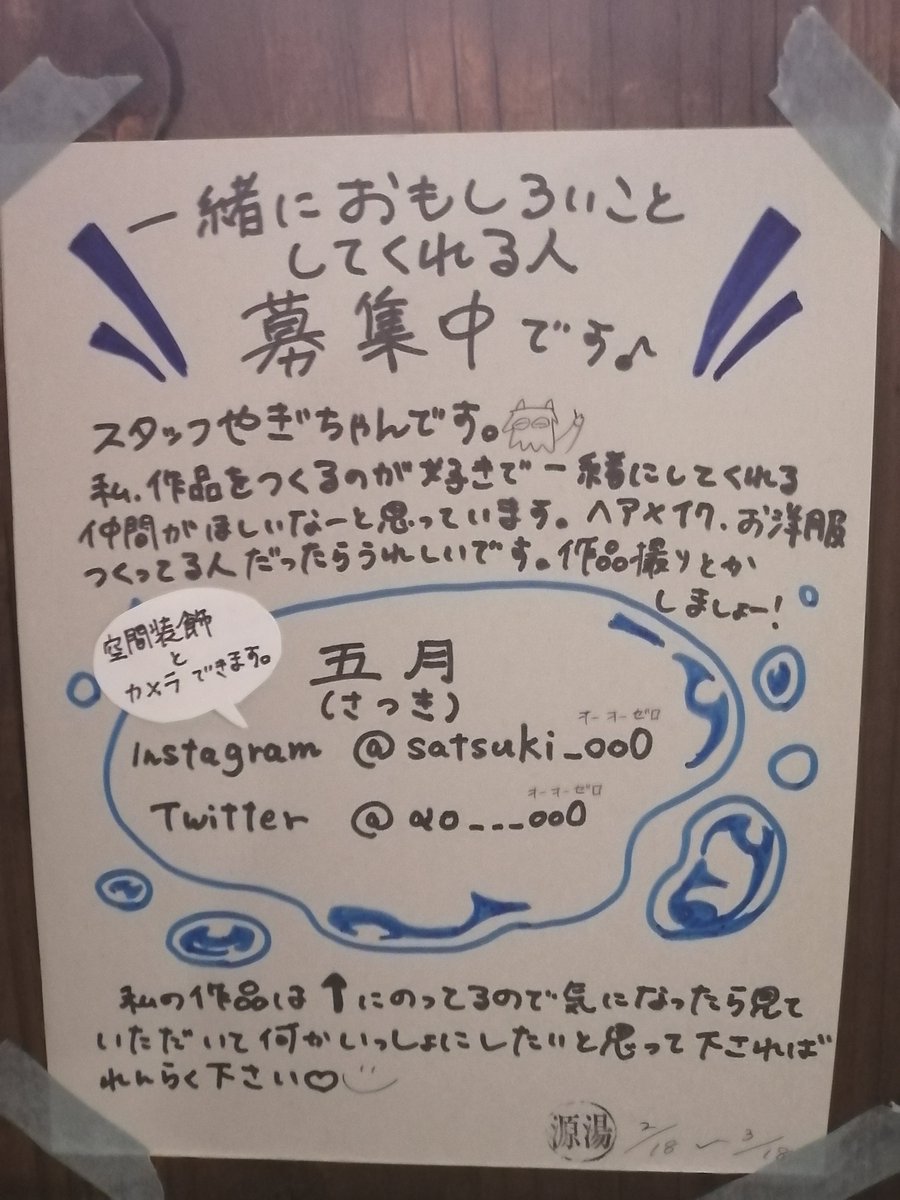 一緒におもしろいこと
してくれる人
募集中です♪
スタッフやぎちゃんです。
私、作品をつくるのが好きで一緒にしてくれる
仲間がほしいなーと思っています。ヘアメイク、お洋服
つくってる人だったらうれしいです。作品撮りとか
しましょー!
空間装飾
と
カメラできます。
五月
(さっき)
オーオーゼロ
Instagram @satsuki_oo0
オーオーゼロ
Twitter @ao___oo0
私の作品は↑にのってるので気になったら見て
いただいて何かいっしょにしたいと思って下されば
れんらく下さい♡
源湯 2/18〜3/18